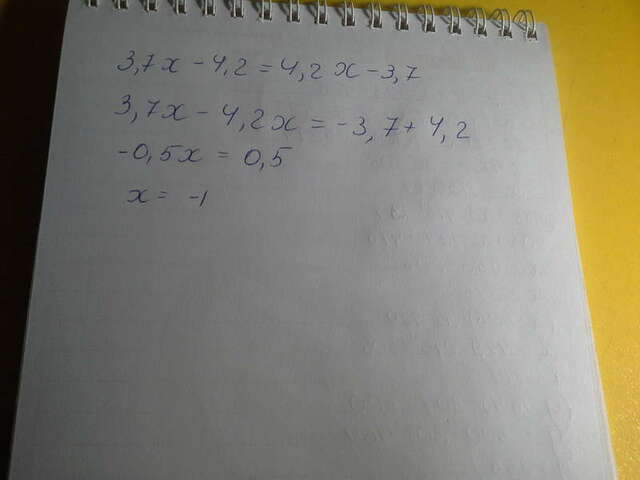 3,7x - 4,2 = 4,2x - 3,7
3,7x - 4,2x = -3,7 + 4,2
-0,5x = 0,5
x = -1